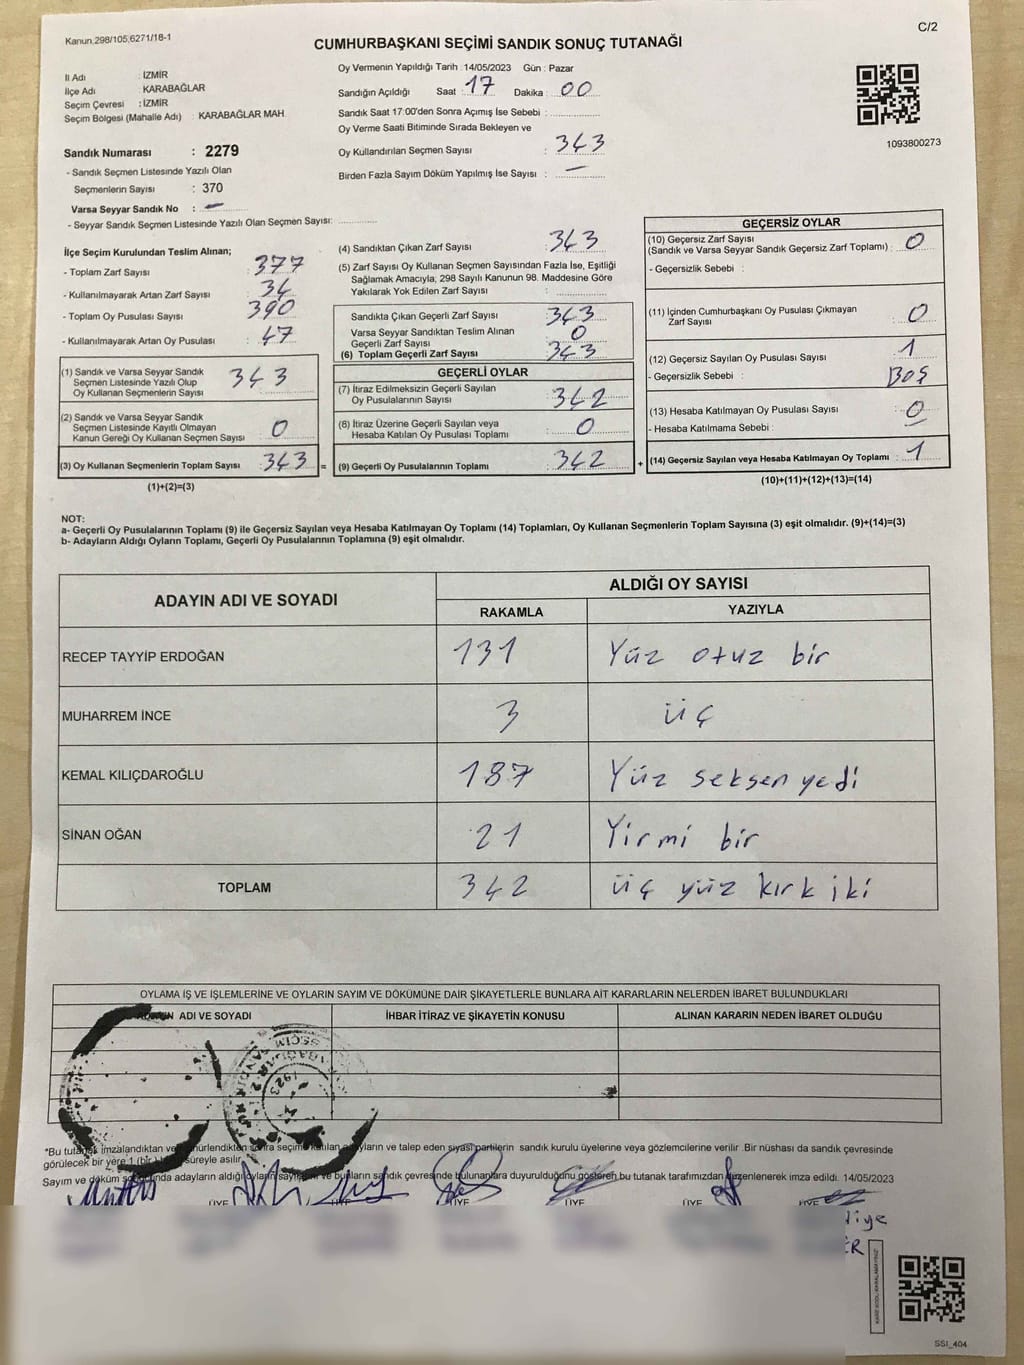 Kanun,298/105,6271/18-1
C/2
CUMHURBAŞKANI SEÇİMİ SANDIK SONUÇ TUTANAĞI
İl Adı : İZMİR
İlçe Adı KARABAĞLAR
Seçim Çevresi : İZMİR
Seçim Bölgesi (Mahalle Adı) : KARABAĞLAR MAH.
Sandık Numarası : 2279
- Sandık Seçmen Listesinde Yazılı Olan
Seçmenlerin Sayısı : 370
Varsa Seyyar Sandık No : —
- Seyyar Sandık Seçmen Listesinde Yazılı Olan Seçmen Sayısı:
Oy Vermenin Yapıldığı Tarih :14/05/2023 Gün : Pazar
Sandığın Açıldığı Saat : 17 Dakika : 00
Sandık Saat 17:00'den Sonra Açımış İse Sebebi :
Oy Verme Saati Bitiminde Sırada Bekleyen ve
Oy Kullandırılan Seçmen Sayısı : 343
Birden Fazla Sayım Döküm Yapılmış İse Sayısı : —
1093800273
İlçe Seçim Kurulundan Teslim Alınan;
- Toplam Zarf Sayısı : 377
- Kullanılmayarak Artan Zarf Sayısı : 34
- Toplam Oy Pusulası Sayısı : 390
- Kullanılmayarak Artan Oy Pusulası : 47
(1) Sandık ve Varsa Seyyar Sandık
Seçmen Listesinde Yazılı Olup
Oy Kullanan Seçmenlerin Sayısı : 343
(2) Sandık ve Varsa Seyyar Sandık
Seçmen Listesinde Kayıtlı Olmayan
Kanun Gereği Oy Kullanan Seçmen Sayısı : 0
(3) Oy Kullanan Seçmenlerin Toplam Sayısı : 343 =
(1)+(2)=(3)
(4) Sandıktan Çıkan Zarf Sayısı : 343
(5) Zarf Sayısı Oy Kullanan Seçmen Sayısından Fazla İse, Eşitliği
Sağlamak Amacıyla, 298 Sayılı Kanunun 98. Maddesine Göre
Yakılarak Yok Edilen Zarf Sayısı :
Sandıkta Çıkan Geçerli Zarf Sayısı : 343
Varsa Seyyar Sandıktan Teslim Alınan
Geçerli Zarf Sayısı : 0
(6) Toplam Geçerli Zarf Sayısı : 343
GEÇERLİ OYLAR
(7) İtiraz Edilmeksizin Geçerli Sayılan
Oy Pusulalarının Sayısı : 342
(8) İtiraz Üzerine Geçerli Sayılan veya
Hesaba Katılan Oy Pusulası Toplamı : 0
(9) Geçerli Oy Pusulalarının Toplamı : 342 +
GEÇERSİZ OYLAR
(10) Geçersiz Zarf Sayısı
(Sandık ve Varsa Seyyar Sandık Geçersiz Zarf Toplamı) : 0
- Geçersizlik Sebebi :
(11) İçinden Cumhurbaşkanı Oy Pusulası Çıkmayan
Zarf Sayısı : 0
(12) Geçersiz Sayılan Oy Pusulası Sayısı : 1
- Geçersizlik Sebebi : BOŞ
(13) Hesaba Katılmayan Oy Pusulası Sayısı : 0
- Hesaba Katılmama Sebebi :
(14) Geçersiz Sayılan veya Hesaba Katılmayan Oy Toplamı : 1
(10)+(11)+(12)+(13)=(14)
NOT:
a- Geçerli Oy Pusulalarının Toplamı (9) ile Geçersiz Sayılan veya Hesaba Katılmayan Oy Toplamı (14) Toplamları, Oy Kullanan Seçmenlerin Toplam Sayısına (3) eşit olmalıdır. (9)+(14)=(3)
b- Adayların Aldığı Oyların Toplamı, Geçerli Oy Pusulalarının Toplamına (9) eşit olmalıdır.
ADAYIN ADI VE SOYADI
ALDIĞI OY SAYISI
RAKAMLA YAZIYLA
RECEP TAYYİP ERDOĞAN 131 Yüz otuz bir
MUHARREM İNCE 3 üç
KEMAL KILIÇDAROĞLU 187 Yüz seksen yedi
SİNAN OĞAN 21 Yirmi bir
TOPLAM 342 üç yüz kırk iki
OYLAMA İŞ VE İŞLEMLERİNE VE OYLARIN SAYIM VE DÖKÜMÜNE DAİR ŞİKAYETLERLE BUNLARA AİT KARARLARIN NELERDEN İBARET BULUNDUKLARI
ADI VE SOYADI İHBAR İTİRAZ VE ŞİKAYETİN KONUSU ALINAN KARARIN NEDEN İBARET OLDUĞU
1923
*Bu tutanak imzalandıktan ve mühürlendikten sonra seçime katılan adayların ve talep eden siyasi partilerin sandık kurulu üyelerine veya gözlemcilerine verilir .Bir nüshası da sandık çevresinde
görülecek bir yere 1 (bir) süreyle asılır.
Sayım ve döküm sonucunda adayların aldığı oyların sayısı ve bunların sandık çevresinde bulunanlara duyurulduğunu gösteren bu tutanak tarafımızdan düzenlenerek imza edildi. 14/05/2023
ÜYE ÜYE ÜYE ÜYE ÜYE
SSI_404